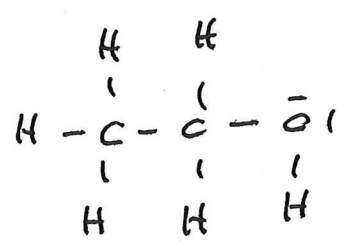 H H
H - C - C - O
H H H